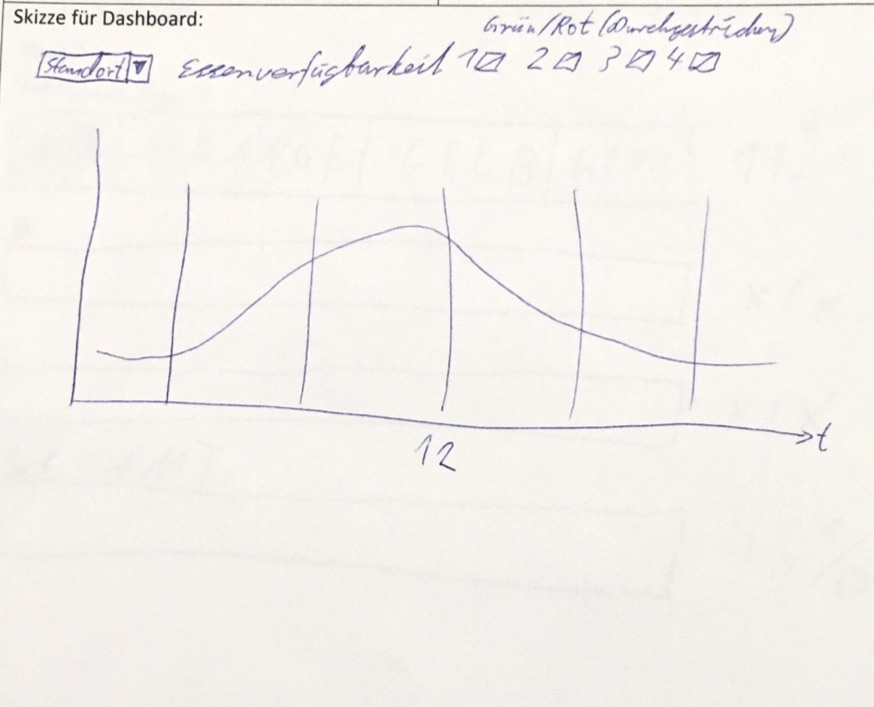 Skizze für Dashboard:
Grün/Rot (Durchgestrichen)
Standort Essenverfügbarkeit 1 2 3 4
12
t